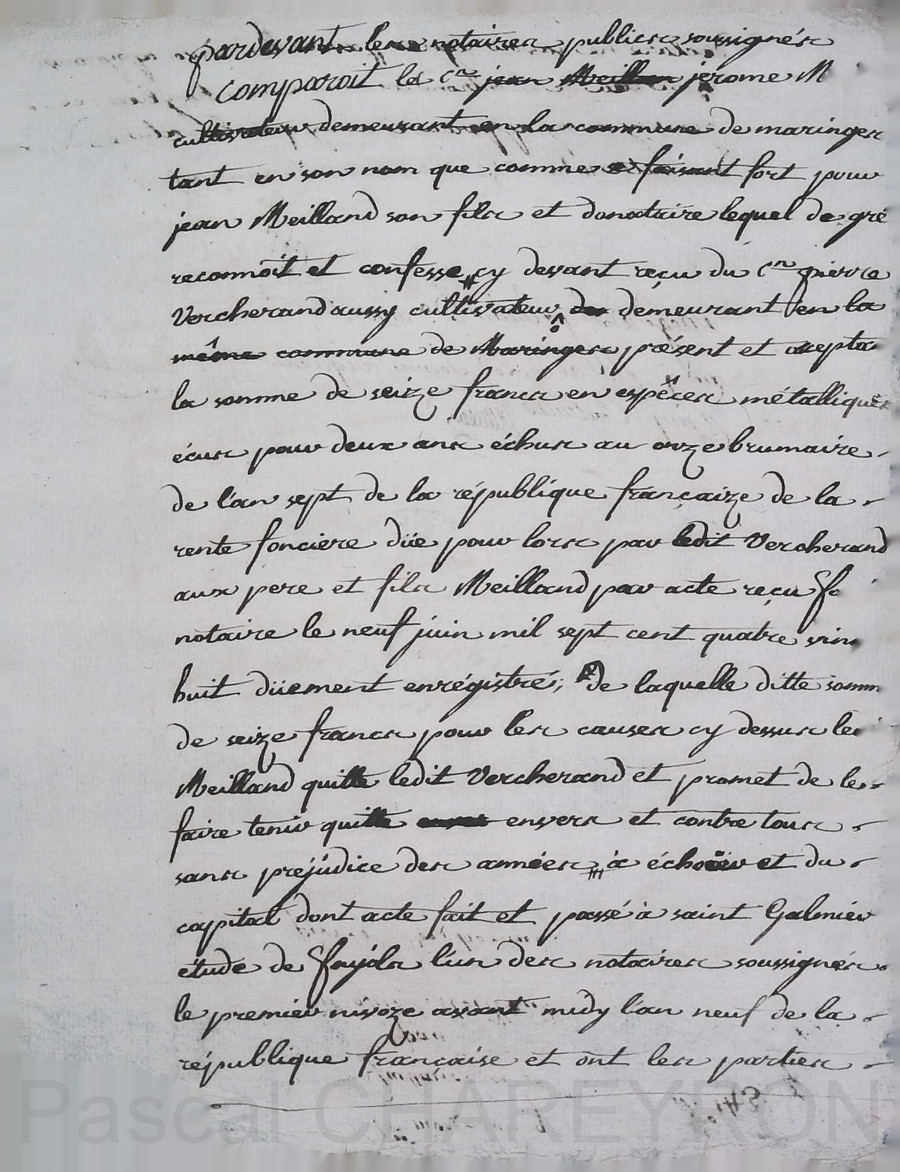 pardevant les notaires publics soussignés
comparoit le c.en jean Meillan jérome M
cultivateur demeurant en la commune de maringes
tant en son nom que comme se faisant fort pour
jean Meilland son fils et donataire lequel de gré
reconnoit et confesse cy devant reçu du C.en pierre
Vercherand aussy cultivateur demeurant en la
même commune de Maringes présent et accepta
la somme de seize francs en espéces métalliques
écus pour deux ans échus au onze brumaire
de l'an sept de la république françaize de la
rente fonciere düe pour lors par ledit Vercherand
aux pere et fils Meilland par acte reçu fa
notaire le neuf juin mil sept cent quatre vin
huit düement enrégistré; de laquelle ditte somm
de seize francs pour les causes cy dessus le
Meilland quitte ledit Vercherand et promet de le
faire tenir quitte envers et contre tous
sans préjudice des années à échoir et du
capital dont acte fait et passé à saint Galmier
étude de fayola l'un des notaires soussignés
le premier nivoze avant midy l'an neuf de la
république française et ont les parties
Pascal CHAREYRON